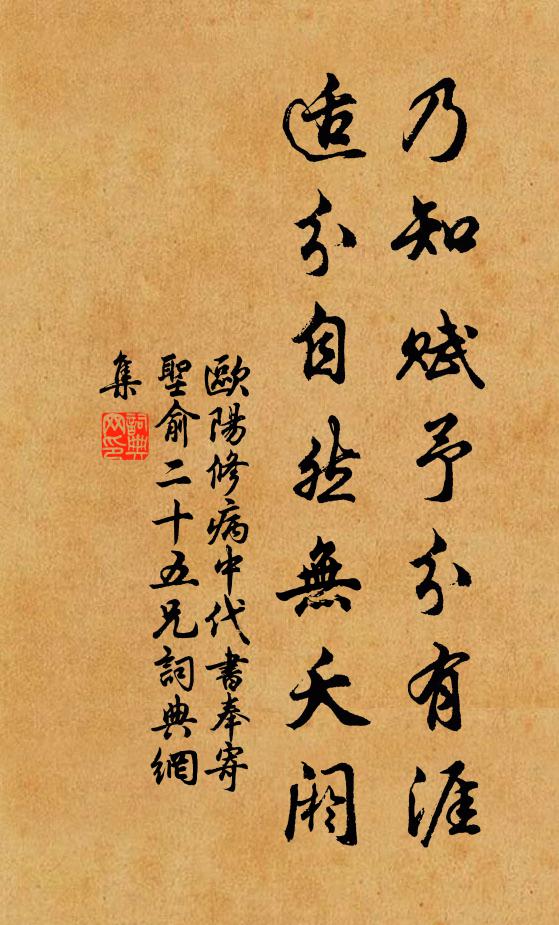 乃知賦予分有涯
适分自然無夭阏
歐陽修病中代書奉寄
聖俞二十五兄詞典網
集
詞典
网印